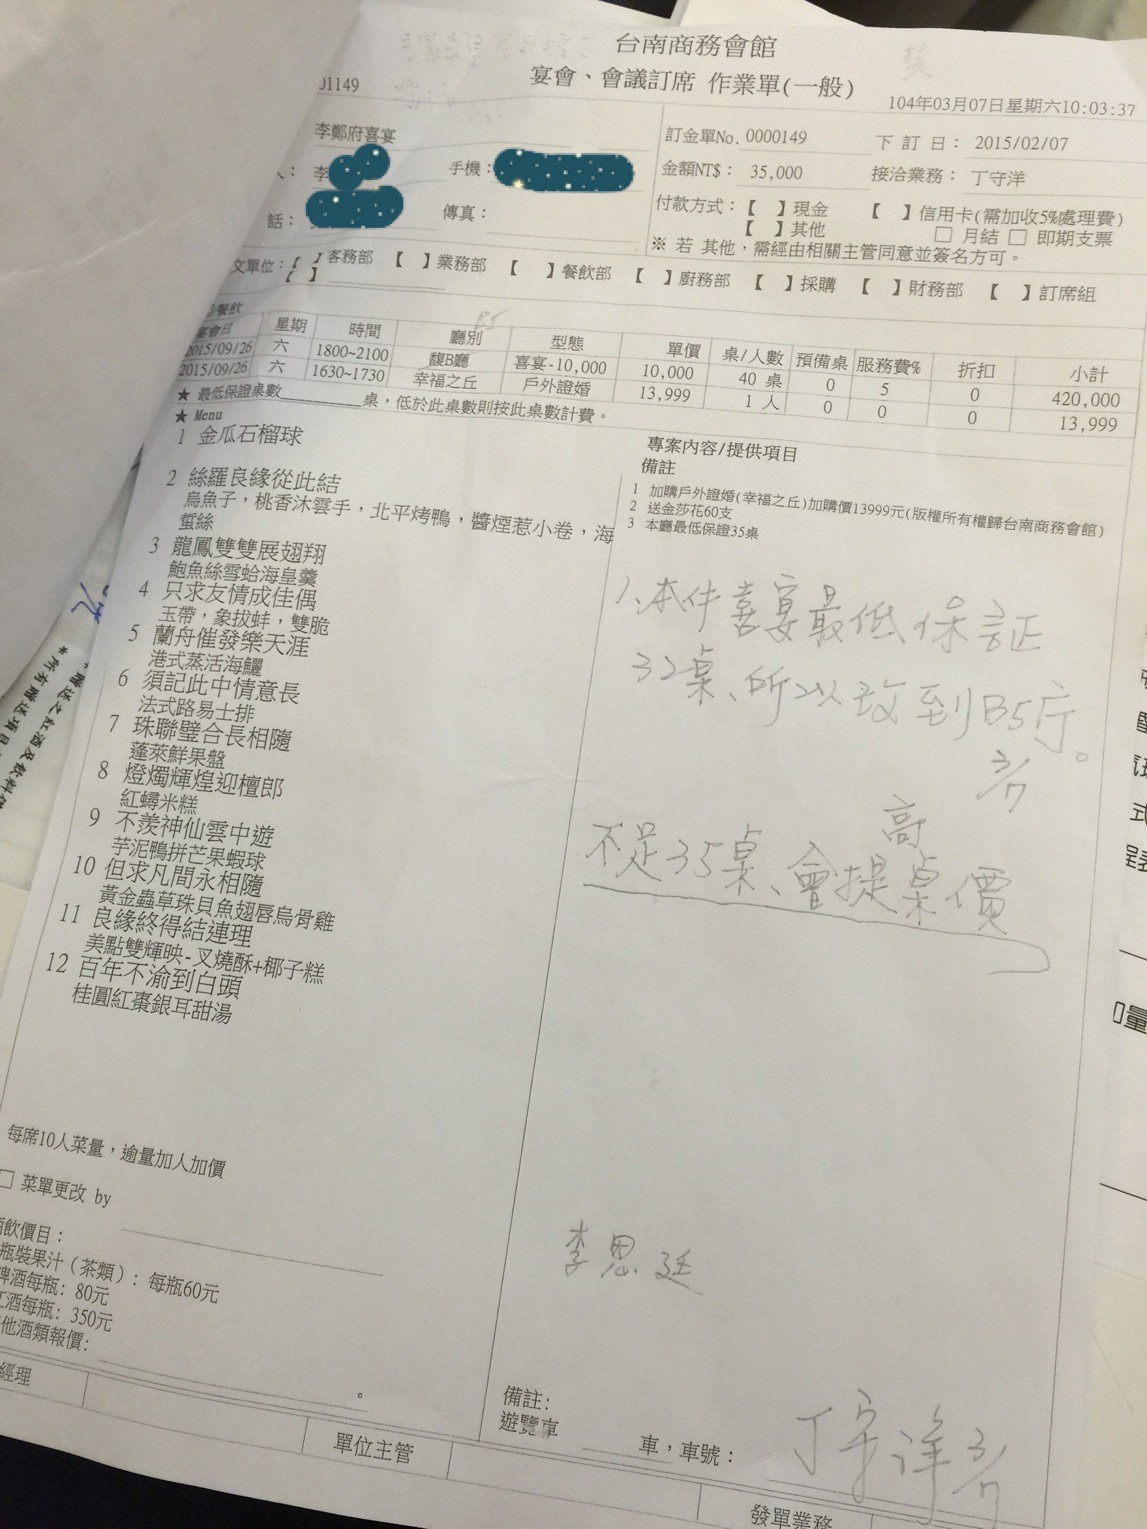 台南商務會館
宴會、會議訂席 作業單(一般)
J1149
104年03月07日星期六10:03:37
李鄭府喜宴
訂金單No. 0000149 下 訂 日: 2015/02/07
人: 李 手機:
金額NT$: 35,000 接洽業務: 丁守洋
話: 傳真:
付款方式:【 】現金 【 】信用卡(需加收5%處理費)
【 】其他 □ 月結 □ 即期支票
※ 若 其他,需經由相關主管同意並簽名方可。
文單位:【 】客務部 【 】業務部 【 】餐飲部 【 】廚務部 【 】採購 【 】財務部 【 】訂席組
【 】
餐飲
B5
宴會日 星期 時間 廳別 型態 單價 桌/人數 預備桌 服務費% 折扣 小計
2015/09/26 六 1800~2100 馥B廳 喜宴-10,000 10,000 40 桌 0 5 0 420,000
2015/09/26 六 1630~1730 幸福之丘 戶外證婚 13,999 1 人 0 0 0 13,999
★ 最低保證桌數 桌,低於此桌數則按此桌數計費。
★ Menu
1 金瓜石榴球
2 絲羅良緣從此結
烏魚子,桃香沐雲手,北平烤鴨,醬煙惹小卷,海
蜇絲
3 龍鳳雙雙展翅翔
鮑魚絲雪蛤海皇羹
4 只求友情成佳偶
玉帶,象拔蚌,雙脆
5 蘭舟催發樂天涯
港式蒸活海鱺
6 須記此中情意長
法式路易士排
7 珠聯璧合長相隨
蓬萊鮮果盤
8 燈燭輝煌迎檀郎
紅蟳米糕
9 不羨神仙雲中遊
芋泥鴨拼芒果蝦球
10 但求凡間永相隨
黃金蟲草珠貝魚翅唇烏骨雞
11 良緣終得結連理
美點雙輝映-叉燒酥+椰子糕
12 百年不渝到白頭
桂圓紅棗銀耳甜湯
專案內容/提供項目
備註
1 加購戶外證婚(幸福之丘)加購價13999元(版權所有權歸台南商務會館)
2 送金莎花60支
3 本廳最低保證35桌
1、本件喜宴最低保証
32桌、所以改到B5庁。
3/7
不足35桌、會提高桌價
每席10人菜量,逾量加人加價
□ 菜單更改 by
飲價目:
瓶裝果汁(茶類): 每瓶60元
啤酒每瓶: 80元
酒每瓶: 350元
他酒類報價:
。
李思廷
備註:
遊覽車 車,車號:
丁守洋 3/7
經理
單位主管
發單業務
*贈送之紅酒及飲料
*所有贈送項目